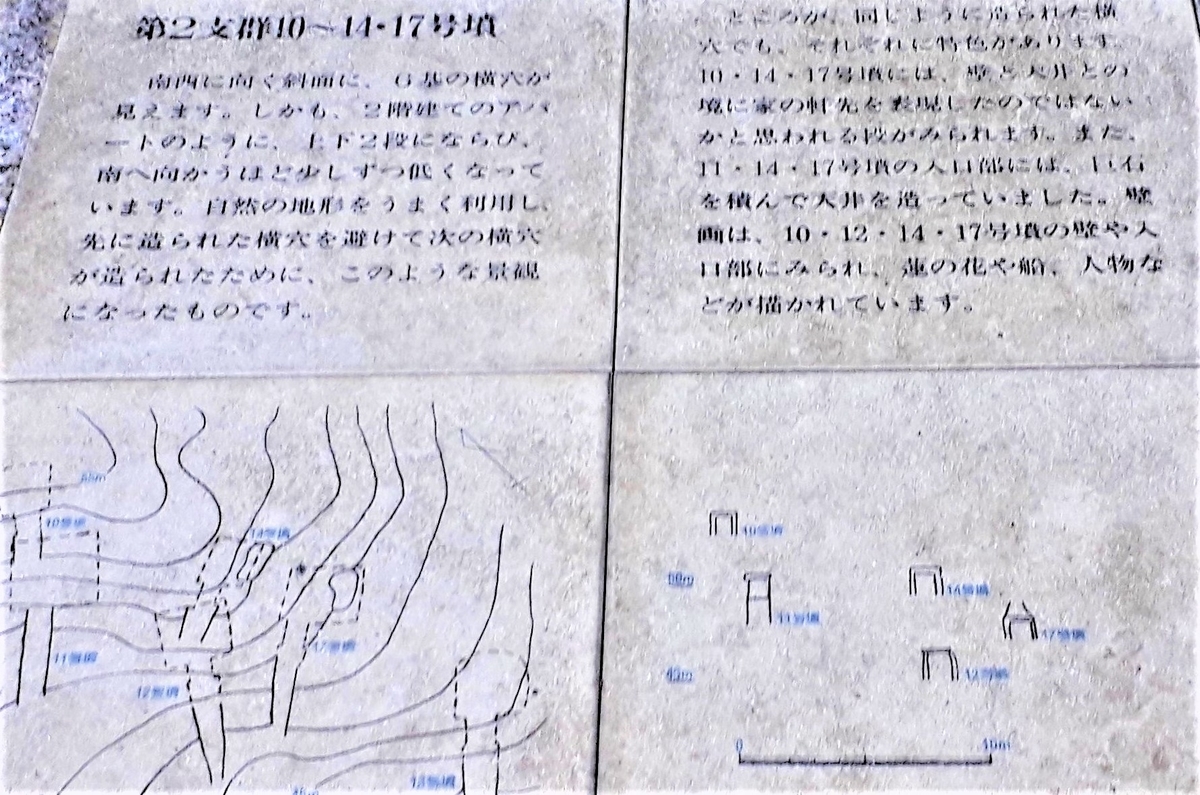 第2支群10〜14・17号墳
南西に向く斜面に、6基の横穴が
見えます。しかも、2階建てのアパ
ートのように、上下2段にならび、
南へ向かうほど少しずつ低くなって
います。自然の地形をうまく利用し、
先に造られた横穴を避けて次の横穴
が造られたために、このような景観
になったものです。
ところが、同じように造られた横
穴でも、それぞれに特色があります。
10・14・17号墳には、壁と天井との
境に家の軒先を表現したのではない
かと思われる段がみられます。また、
11・14・17号墳の入口部には、巨石
を積んで天井を造っていました。壁
画は、10・12・14・17号墳の壁や入
口部にみられ、蓮の花や船、人物な
どが描かれています。
10号墳
14号墳
11号墳
17号墳
12号墳
13号墳
45m
10号墳
50m
14号墳
11号墳
17号墳
45m
12号墳
0
10m